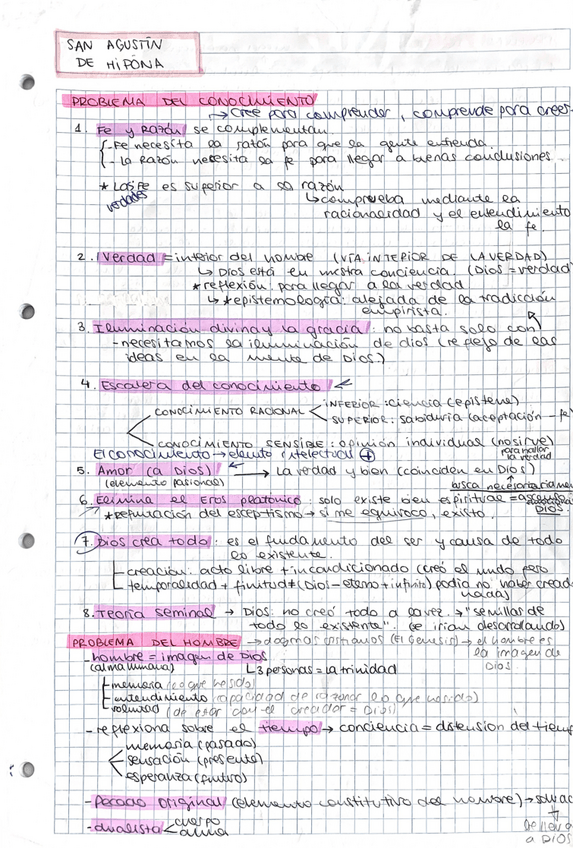 SAN AGUSTÍN
DE HIPONA
PROBLEMA DEL CONOCIMIENTO
→ cree para comprender, comprende para creer
1. Fe y Razón se complementan.
- Fe necesita la razón para que la gente entienda.
- La razón necesita la fe para llegar a buenas conclusiones.
* Las verdades fe es superior a la razón
↳ comprueba mediante la
racionalidad y el entendimiento
la fe
2. Verdad = interior del hombre (VÍA INTERIOR DE LA VERDAD)
↳ Dios está en nuestra conciencia. (Dios = verdad
* reflexión: para llegar a la verdad
↳ * epistemología: alejada de la tradicción
empirista.
3. Iluminación divina y la gracia: no basta solo con
- necesitamos la iluminación de dios (reflejo de las
ideas en la mente de Dios.)
4. Escalera del conocimiento
CONOCIMIENTO RACIONAL < INFERIOR: ciencia (episteme)
SUPERIOR: sabiduría (aceptación - fe
CONOCIMIENTO SENSIBLE: opinión individual (no sirve)
para hallar la verdad
El conocimiento → elemento intelectual +
5. Amor (a Dios) → La verdad y bien (coinciden en Dios)
(elemento pasional)
busca necesariamente
6. Elimina el Eros platónico: solo existe bien espiritual =
DIOS
* Refutación del esceptismo → si me equivoco, existo.
7. Dios crea todo: es el fundamento del ser y causa de todo
lo existente.
creación: acto libre + incondicionado (creó el mundo pero
temporalidad + finitud ≠ (Dios - eterno + infinito) podía no haber cread
nada)
8. Teoría seminal → Dios: no creó todo a la vez. → "semillas de
todo lo existente". (se irían desarrollando)
PROBLEMA DEL HOMBRE → dogmas cristianos (El Génesis) → el hombre es
la imagen de
Dios
- hombre = imagen de Dios
(alma humana) ↳ 3 personas = la trinidad
memoria (lo que ha sido)
entendimiento (capacidad de razonar lo que ha sido)
voluntad (de estar con el creador = Dios)
- reflexiona sobre el tiempo → conciencia = distensión del tiemp
memoria (pasado)
sensación (presente)
esperanza (futuro)
- Pecado original (elemento constitutivo del hombre) →
a DIOS
- dualista < cuerpo
alma